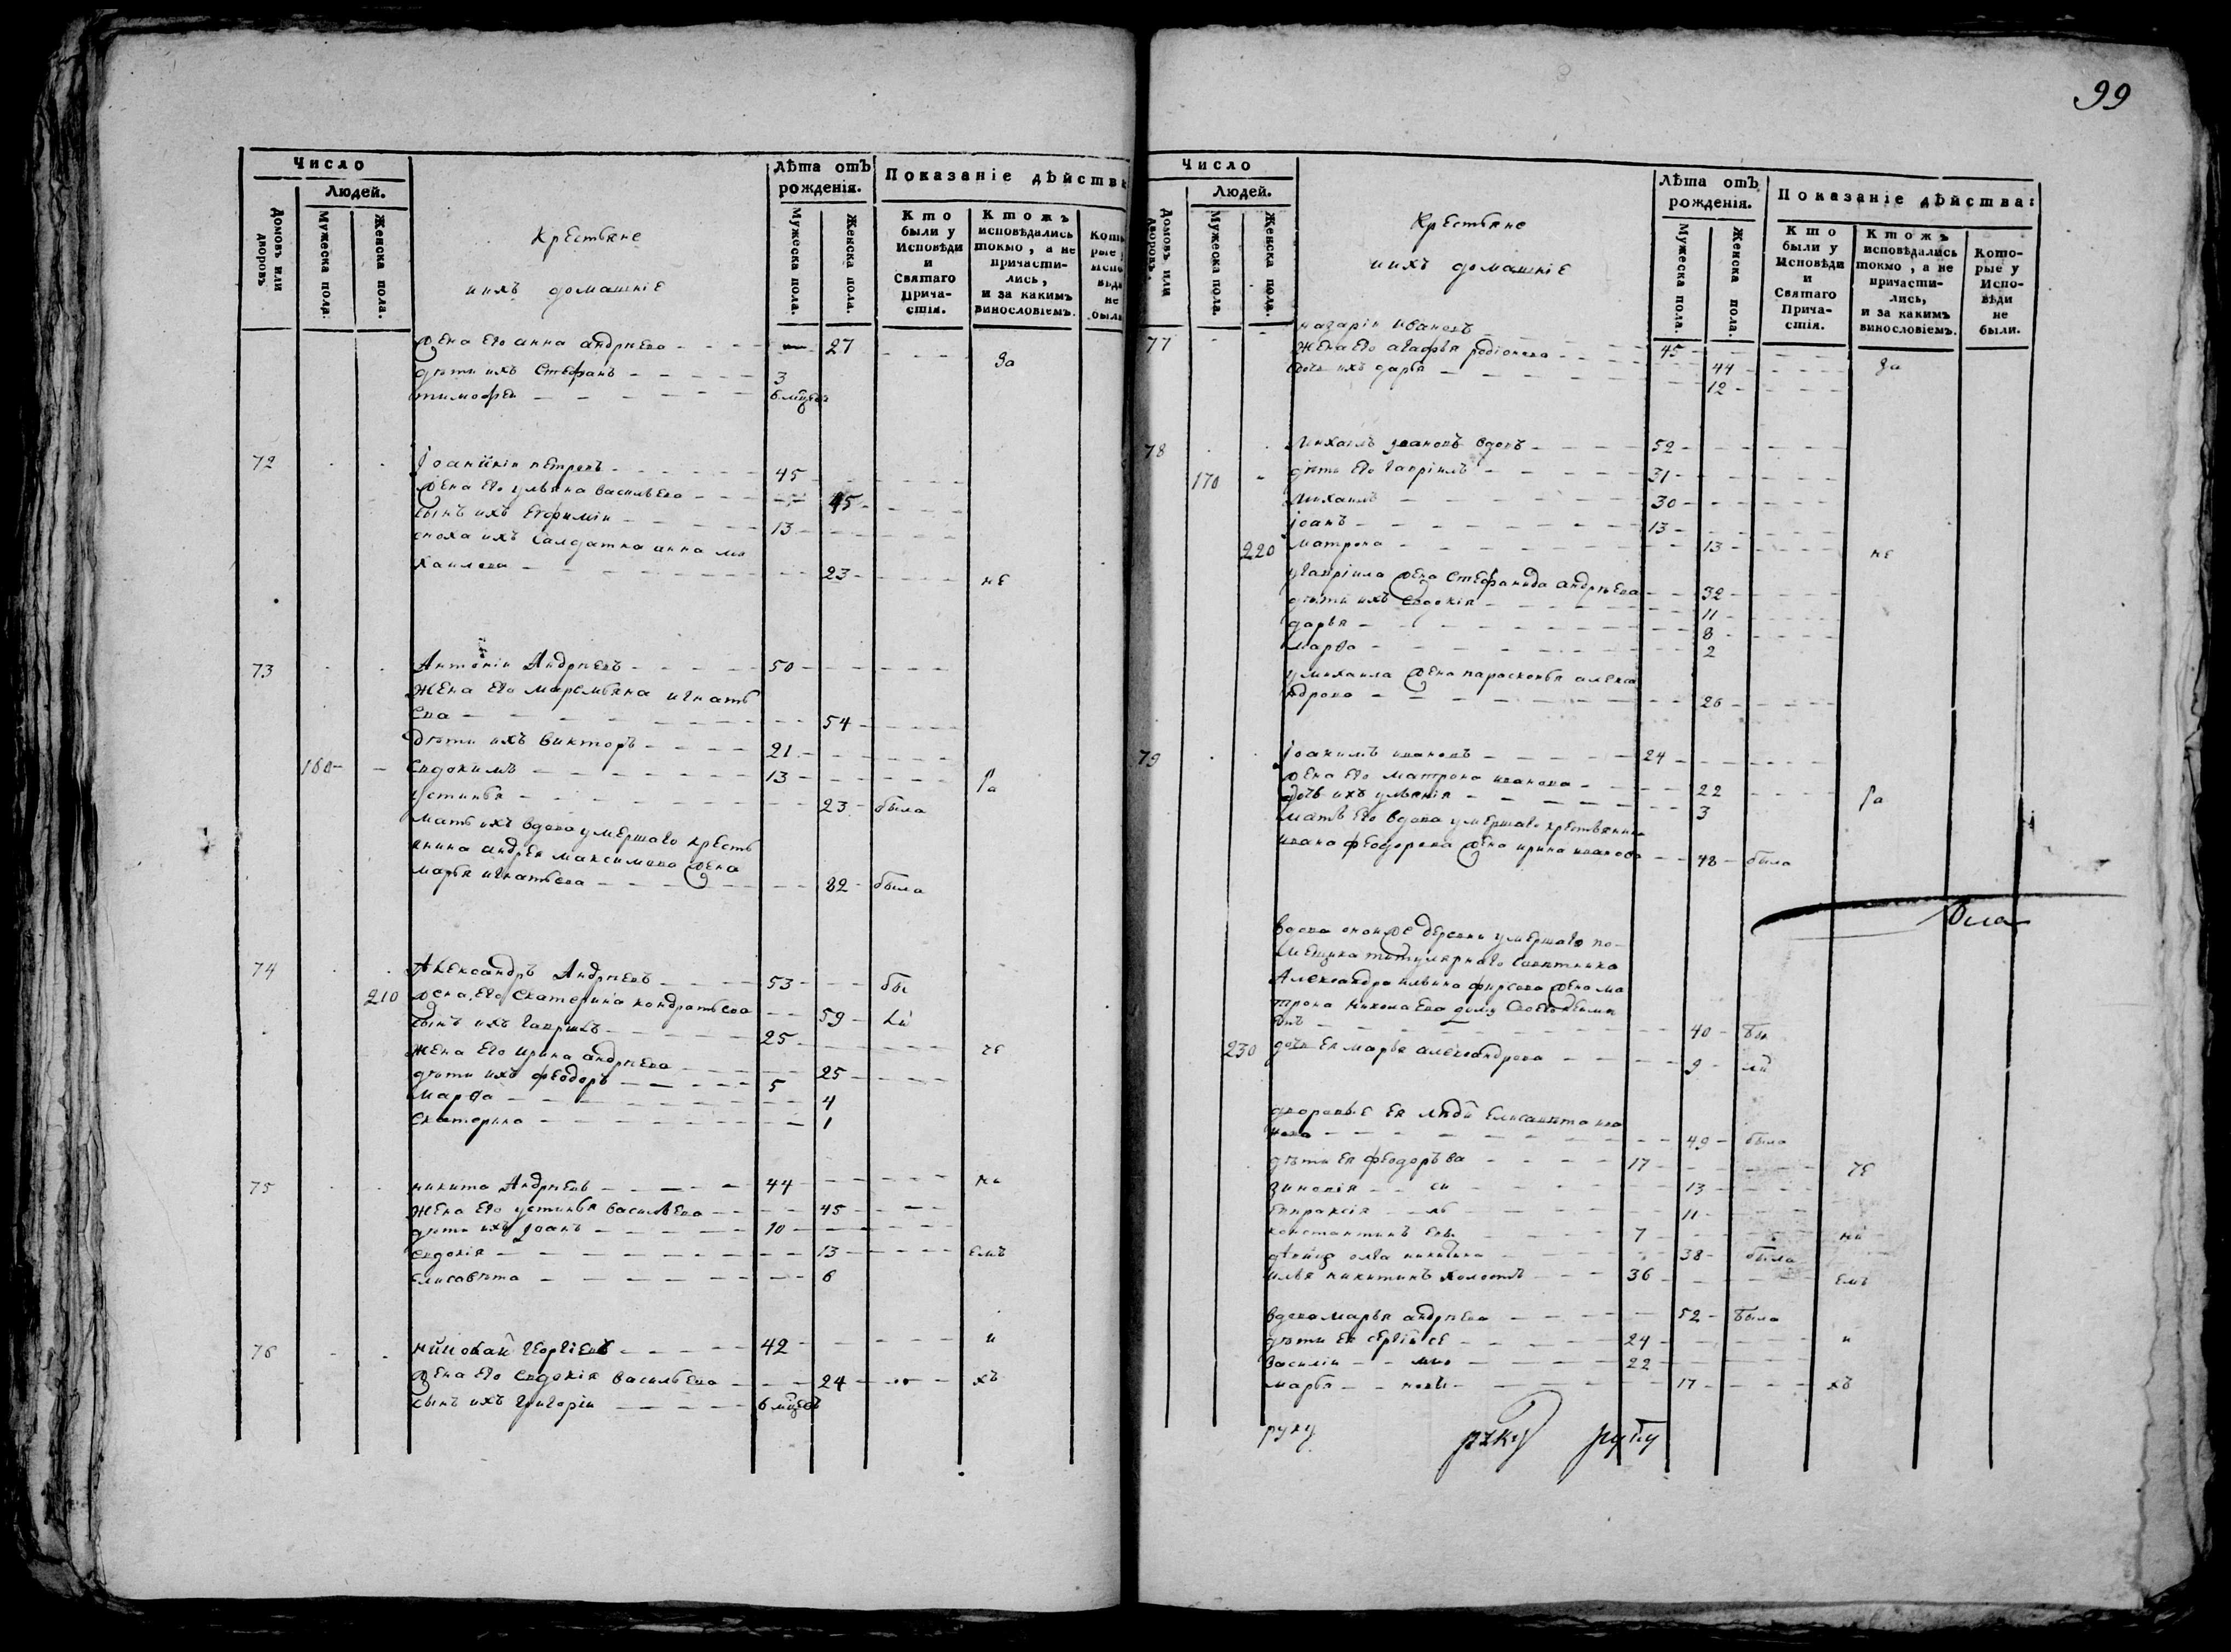 Число
Людей.
Домовъ или дворовъ
Мужеска пола.
Женска пола.
Крестьяне
и ихъ домашніе
Лѣта отъ рожденія.
Мужеска пола.
Женска пола.
Показаніе дѣйства
Кто были у Исповѣди и Святаго Прича-стія.
Ктожъ исповѣдались токмо, а не причасти-лись, и за какимъ винословіемъ.
жена его анна андрѣева 27
дѣти ихъ Стефанъ 3 За
тимофеи 6 мцевъ
72 Іоанникіи петровъ 45
жена его ульяна васильева 45
сынъ ихъ Евфиміи 13
сноха ихъ Салдатка анна ми
хаилова 23 не
73 Антоніи Андрѣевъ 50
жена его маремьяна игнать
ева 54
дѣти ихъ викторъ 21
160 Евдокимъ 13 ра
устинья 23 была
мать ихъ вдова умершаго кресть
янина андрея максимова жена
марья игнатьева 82 была
74 Александръ Андрѣевъ 53 бы
210 жена его Екатерина кондратьева 59 ли
сынъ ихъ гавріилъ 25
жена его ирина андрѣева 25 че
дѣти ихъ феодоръ 5
марѳа 4
Екатерина 1
75 никита Андрѣевъ 44 ни
жена его устинья васильева 45
дѣти ихъ іоанъ 10
Евдокія 13 емъ
елисавѣта 6
76 николай георгіевъ 42 и
жена его Евдокія васильева 24 хъ
сынъ ихъ григоріи 6 мцевъ
99
Число
Людей.
Домовъ или дворовъ.
Мужеска пола.
Женска пола.
Крестьяне
и ихъ домашніе
Лѣта отъ рожденія.
Мужеска пола.
Женска пола.
Показаніе дѣйства:
Кто были у Исповѣди и Святаго Прича-стія.
Ктожъ исповѣдались токмо, а не причасти-лись, и за какимъ винословіемъ.
Кото-рые у Испо-вѣди не были.
77 назаріи Ивановъ 45
жена его агафья родіонова 44 За
дочь ихъ дарья 12
78 Михаилъ ивановъ вдовъ 52
170 дѣти его гавріилъ 31
Михаилъ 30
іоанъ 13
220 матрона 13 не
у гавріила жена Стефанида андрѣева 32
дѣти ихъ Евдокія 11
дарья 8
марѳа 2
у михаила жена парасковья алекса
ндрова 26
79 іоакимъ ивановъ 24
жена его матрона иванова 22
дочь ихъ ульянія 3 ра
мать его вдова умершаго крестьянина
ивана феодорова жена ирина иванова 48 была
вдова оной же деревни умершаго по-
мещика титулярнаго Советника
Александра ильина фирсова жена ма
трона николаева 40 бы
230 дочь ея марья александрова 9 ли
дворовые ея люди Елисавета ива
нова 49 была
дѣти ея феодоръ ва 17 че
Зиновія си 13
Евпраксія ль 11
константинъ евы 7 ни
дѣвица олга никитина 38 была
илья никитинъ холостъ 36 емъ
вдова марья андрѣева 52 была
дѣти ея сергій се 24 и
василіи мио 22
марья новы 17 хъ
руку руку руку